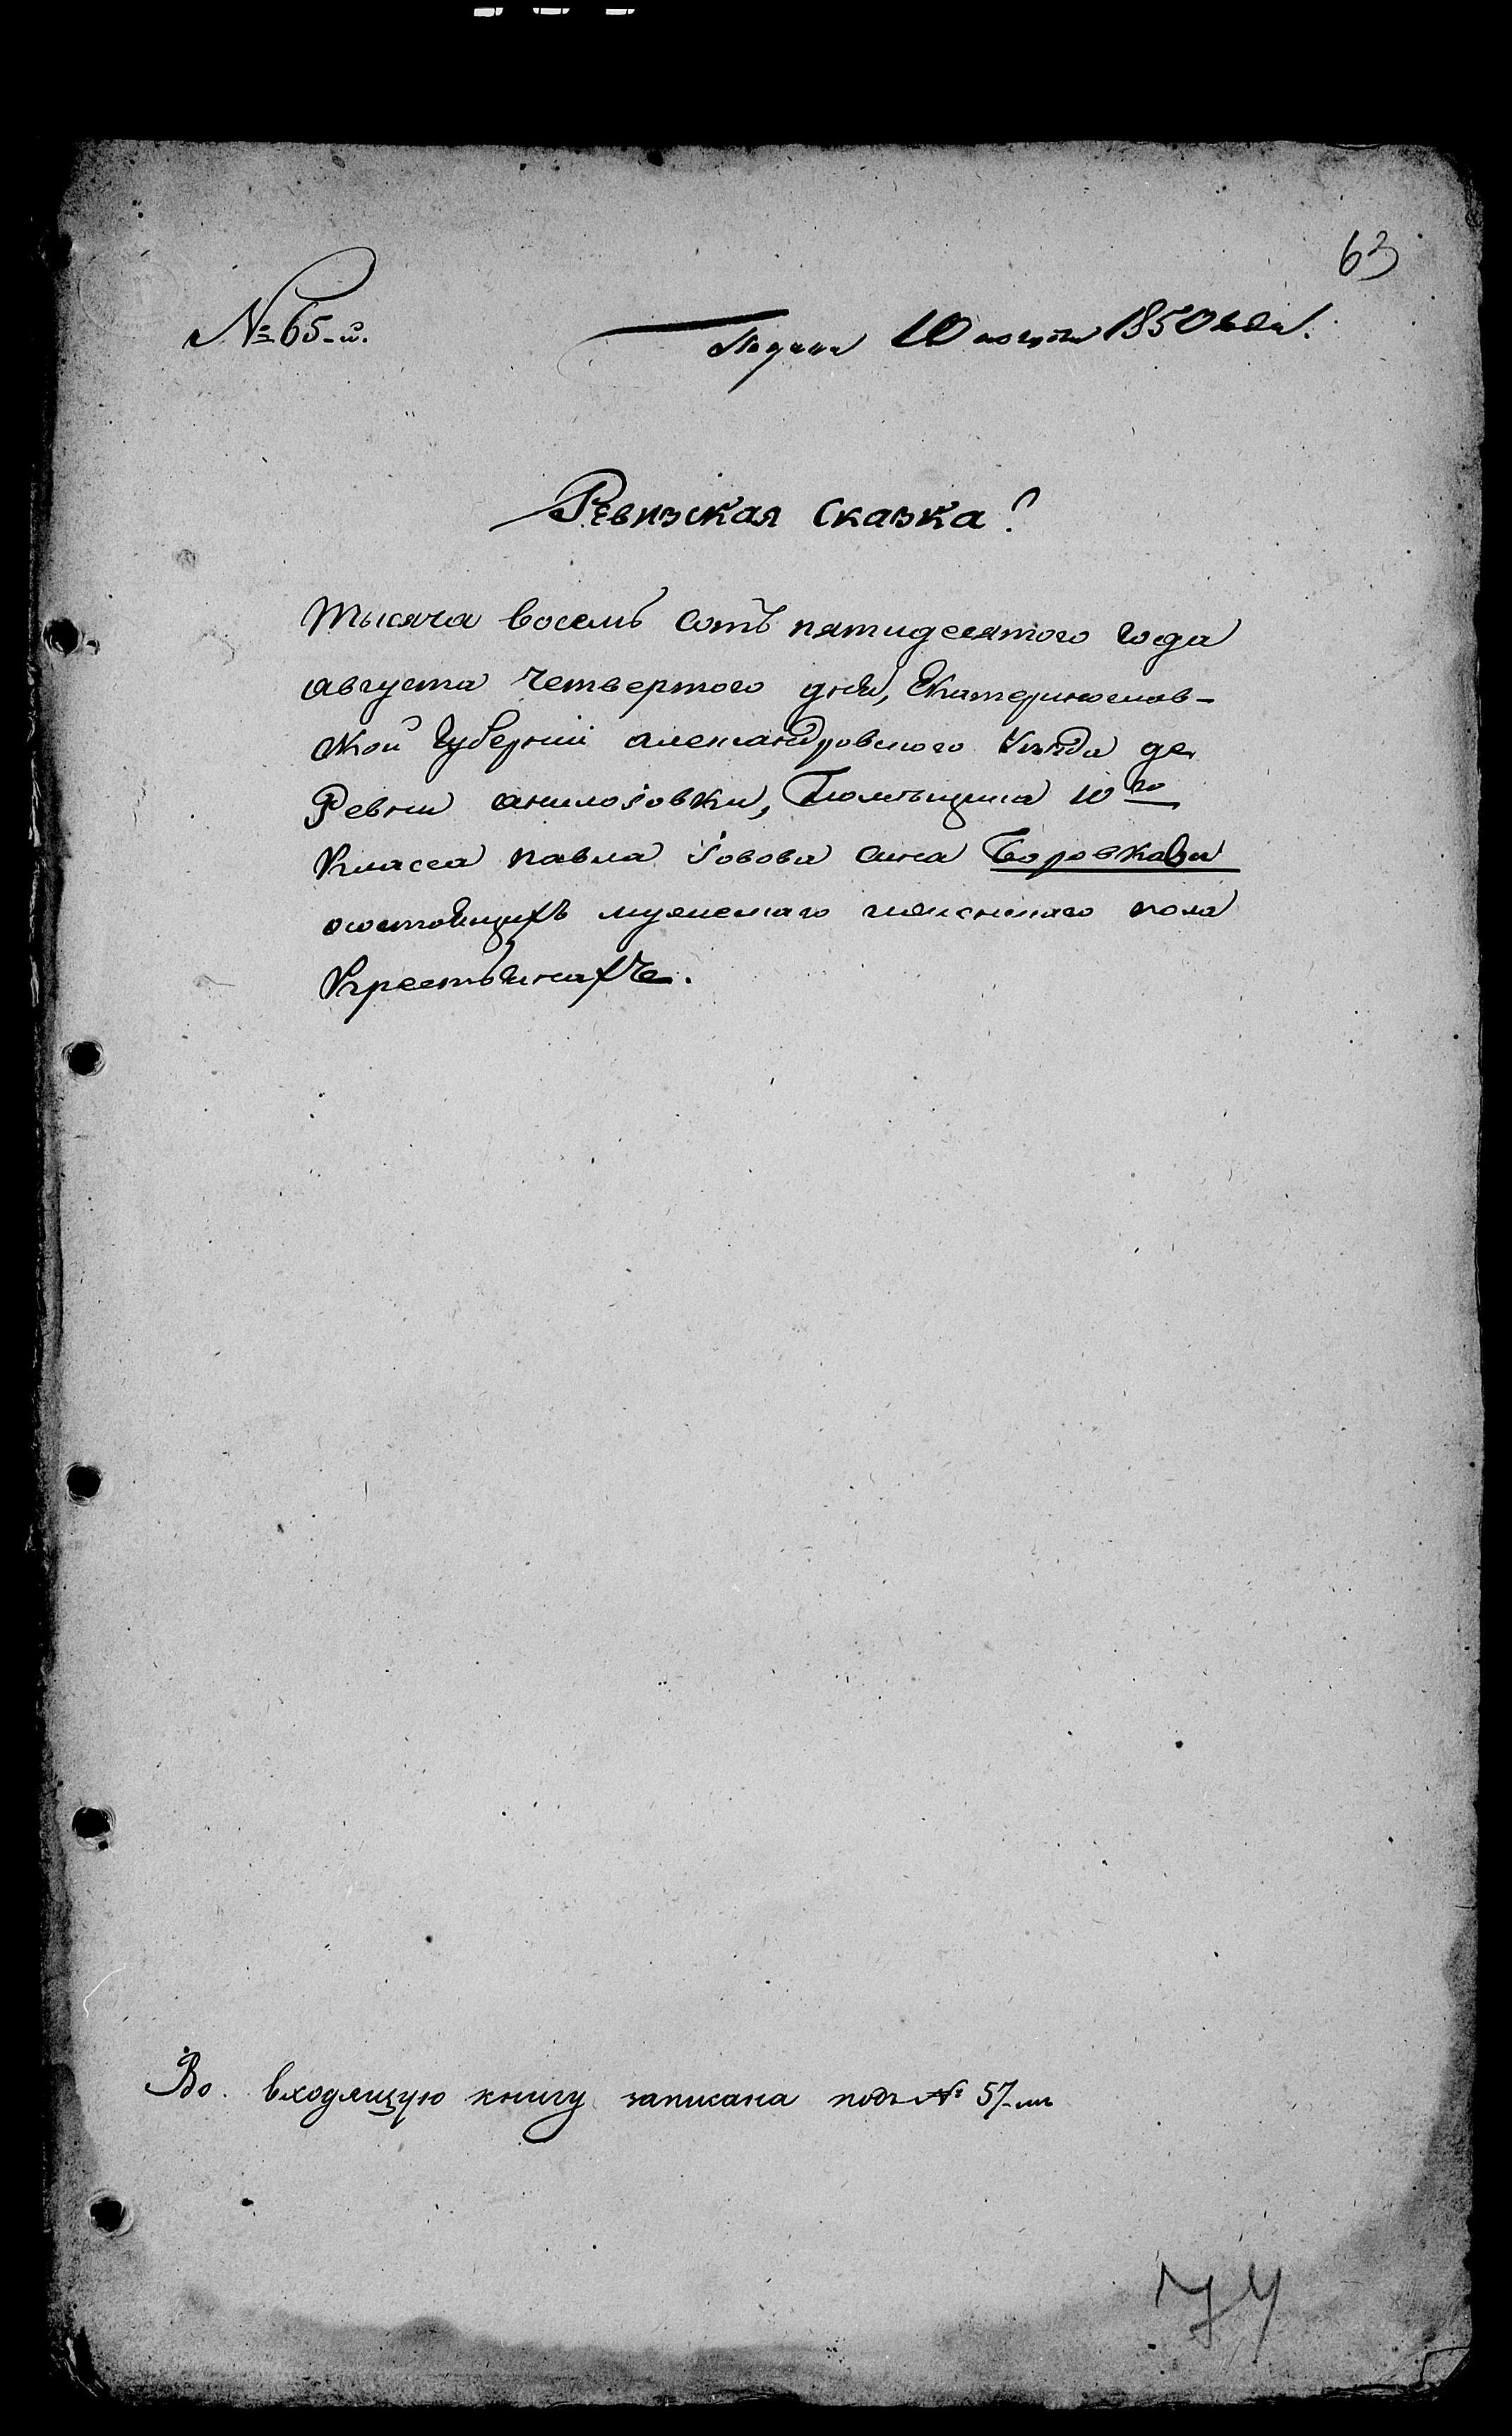 63
№ 65-й.
Подана 10 августа 1850 года.
Ревизская сказка?
Тысяча восемь сотъ пятидесятого года
августа четвертого дня, Екатеринослав-
ской губернии александровского уѣзда де
Ревни Помѣщика 10го
класса павла Іовова сина Боровкова
о состоящихъ мужескаго и женскаго пола
Крестьянахъ.
Во входящую книгу записана подъ № 57-мъ
74